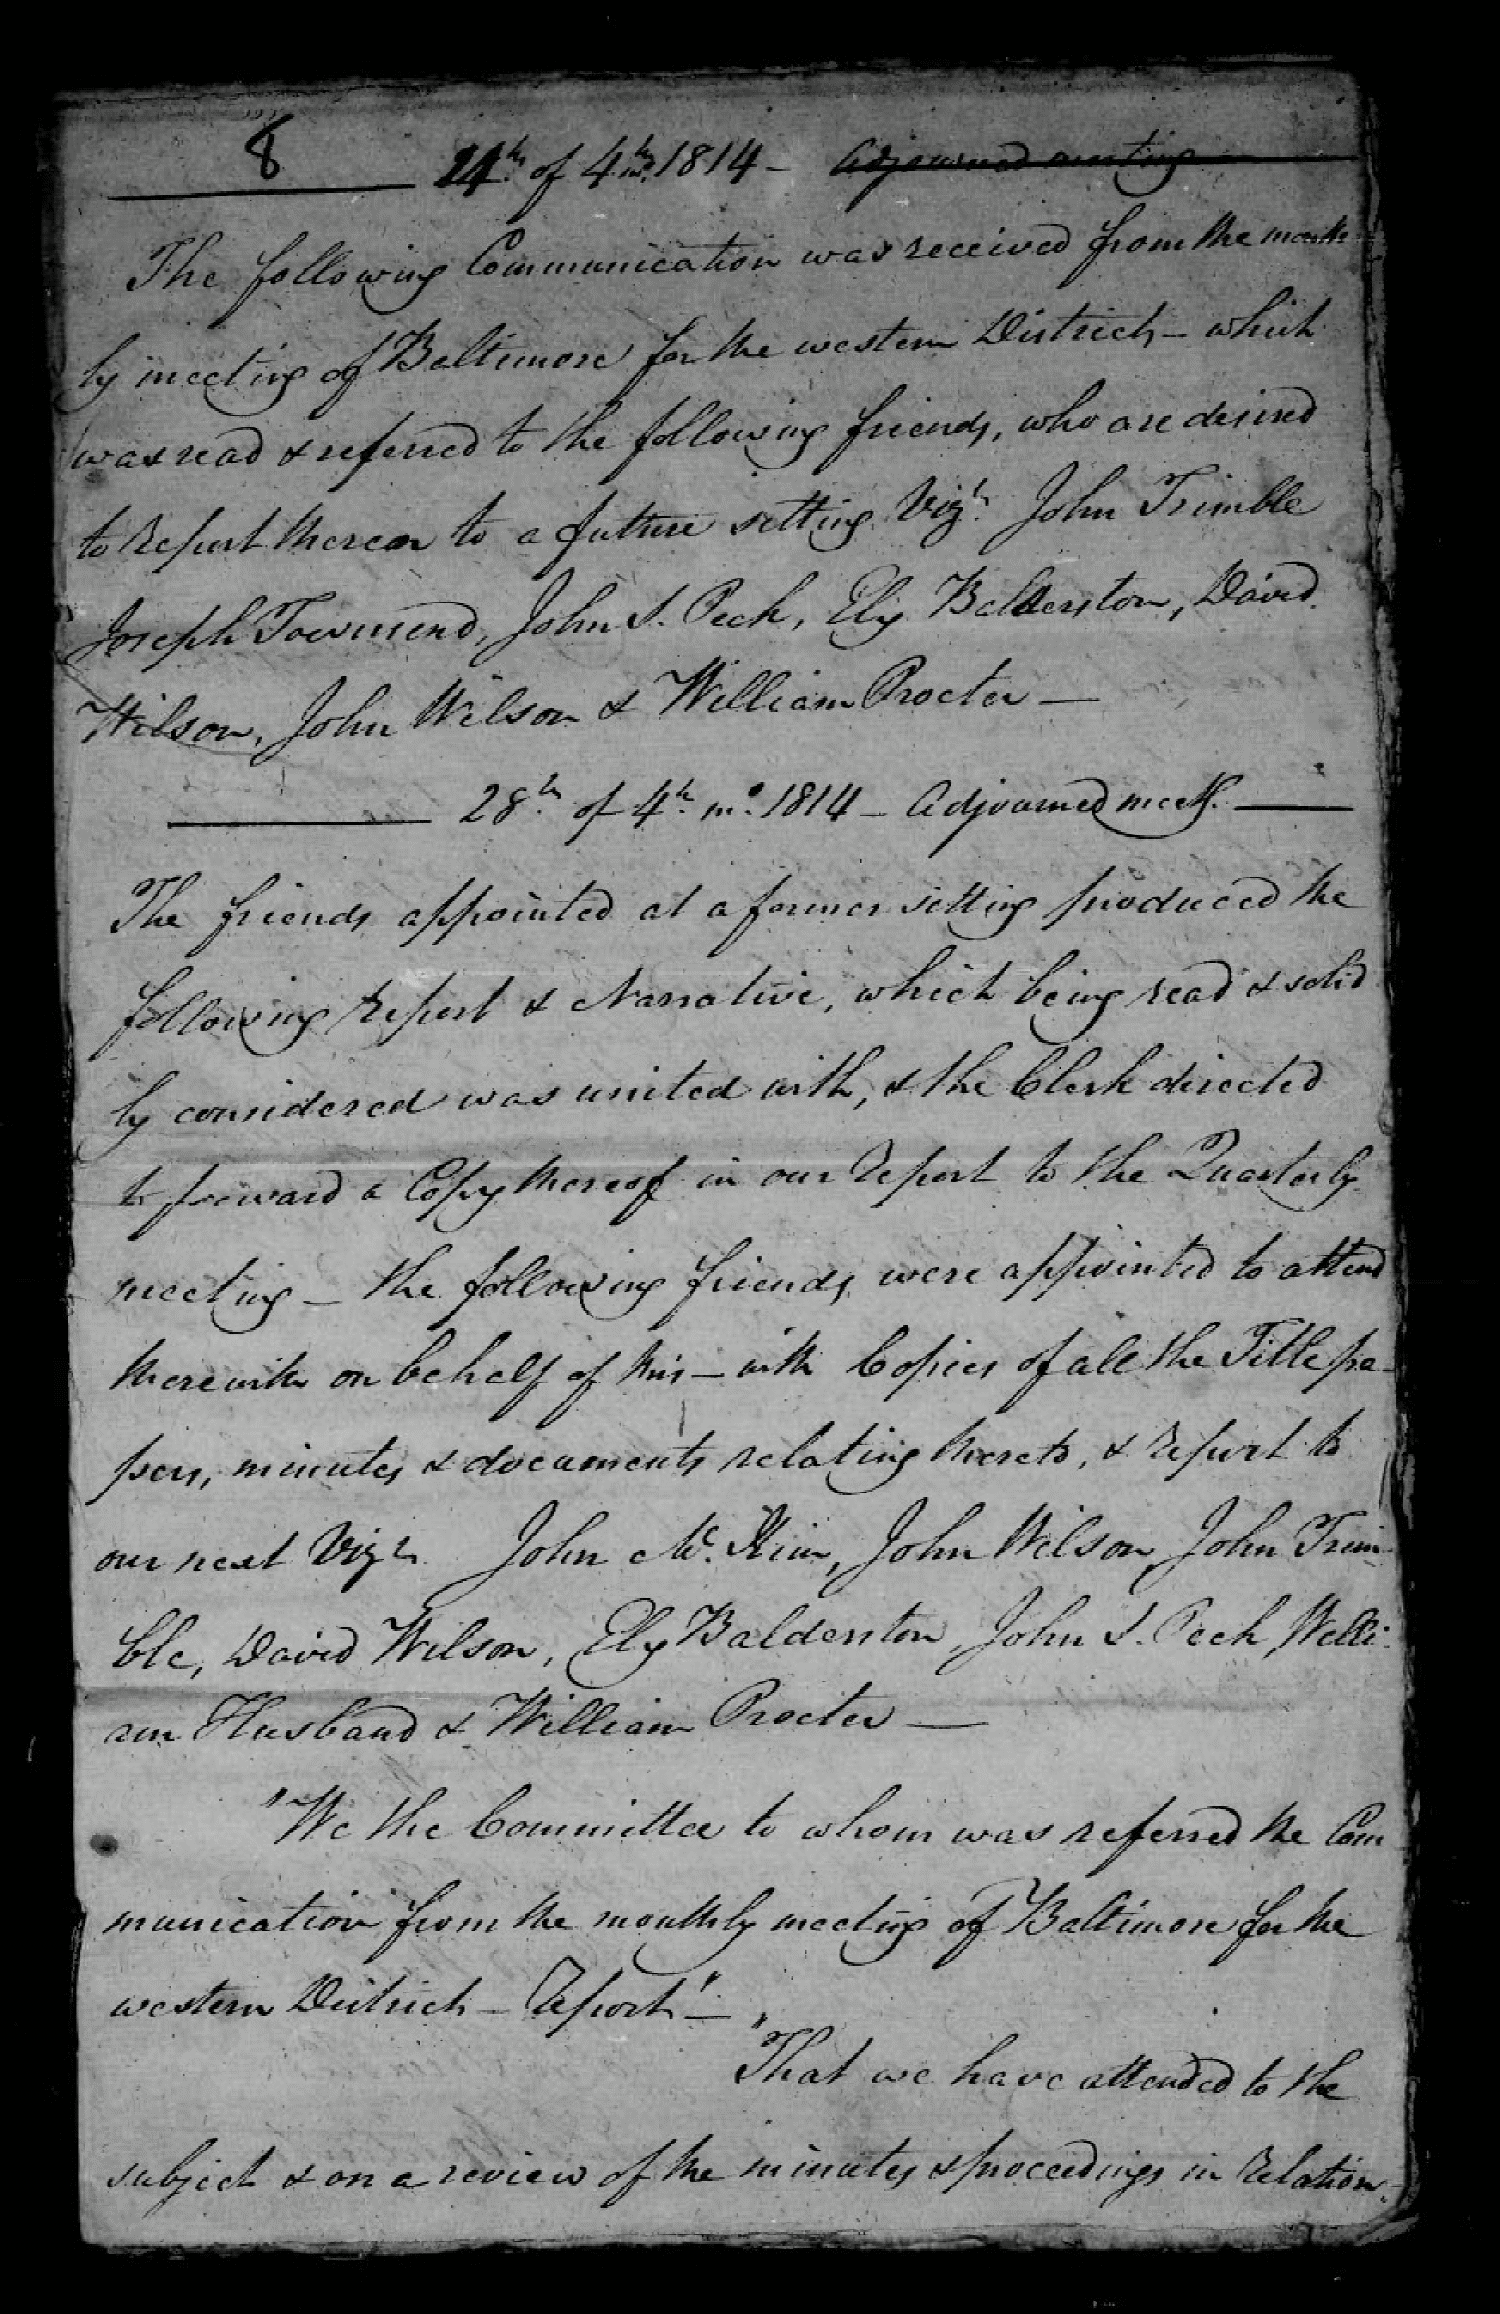 8
14th of 4th mo. 1814 - Adjourned meeting
The following Communication was received from the month
ly meeting of Baltimore for the western District - which
was read & referred to the following friends, who are desired
to report thereon to a future sitting Vizt. John Trimble
Joseph Townsend, John S. Peck, Ely Balderston, David
Wilson, John Wilson & William Procter —
28th of 4th mo. 1814 - Adjourned meetg. —
The friends appointed at a former sitting produced the
following report & Narrative, which being read & solid
ly considered was united with, & the Clerk directed
to forward a Copy thereof in our report to the Quarterly
meeting - the following friends were appointed to attend
therewith on behalf of this - with Copies of all the Title pa-
pers, minutes & documents relating thereto, & report to
our next Vizt. John Mc.Kim, John Wilson, John Trim-
ble, David Wilson, Ely Balderston, John S. Peck, Willi-
am Husband & William Procter —
"We the Committee to whom was referred the Com
munication from the monthly meeting of Baltimore for the
western District - Report" -
"That we have attended to the
subject & on a review of the minutes & proceedings in relation